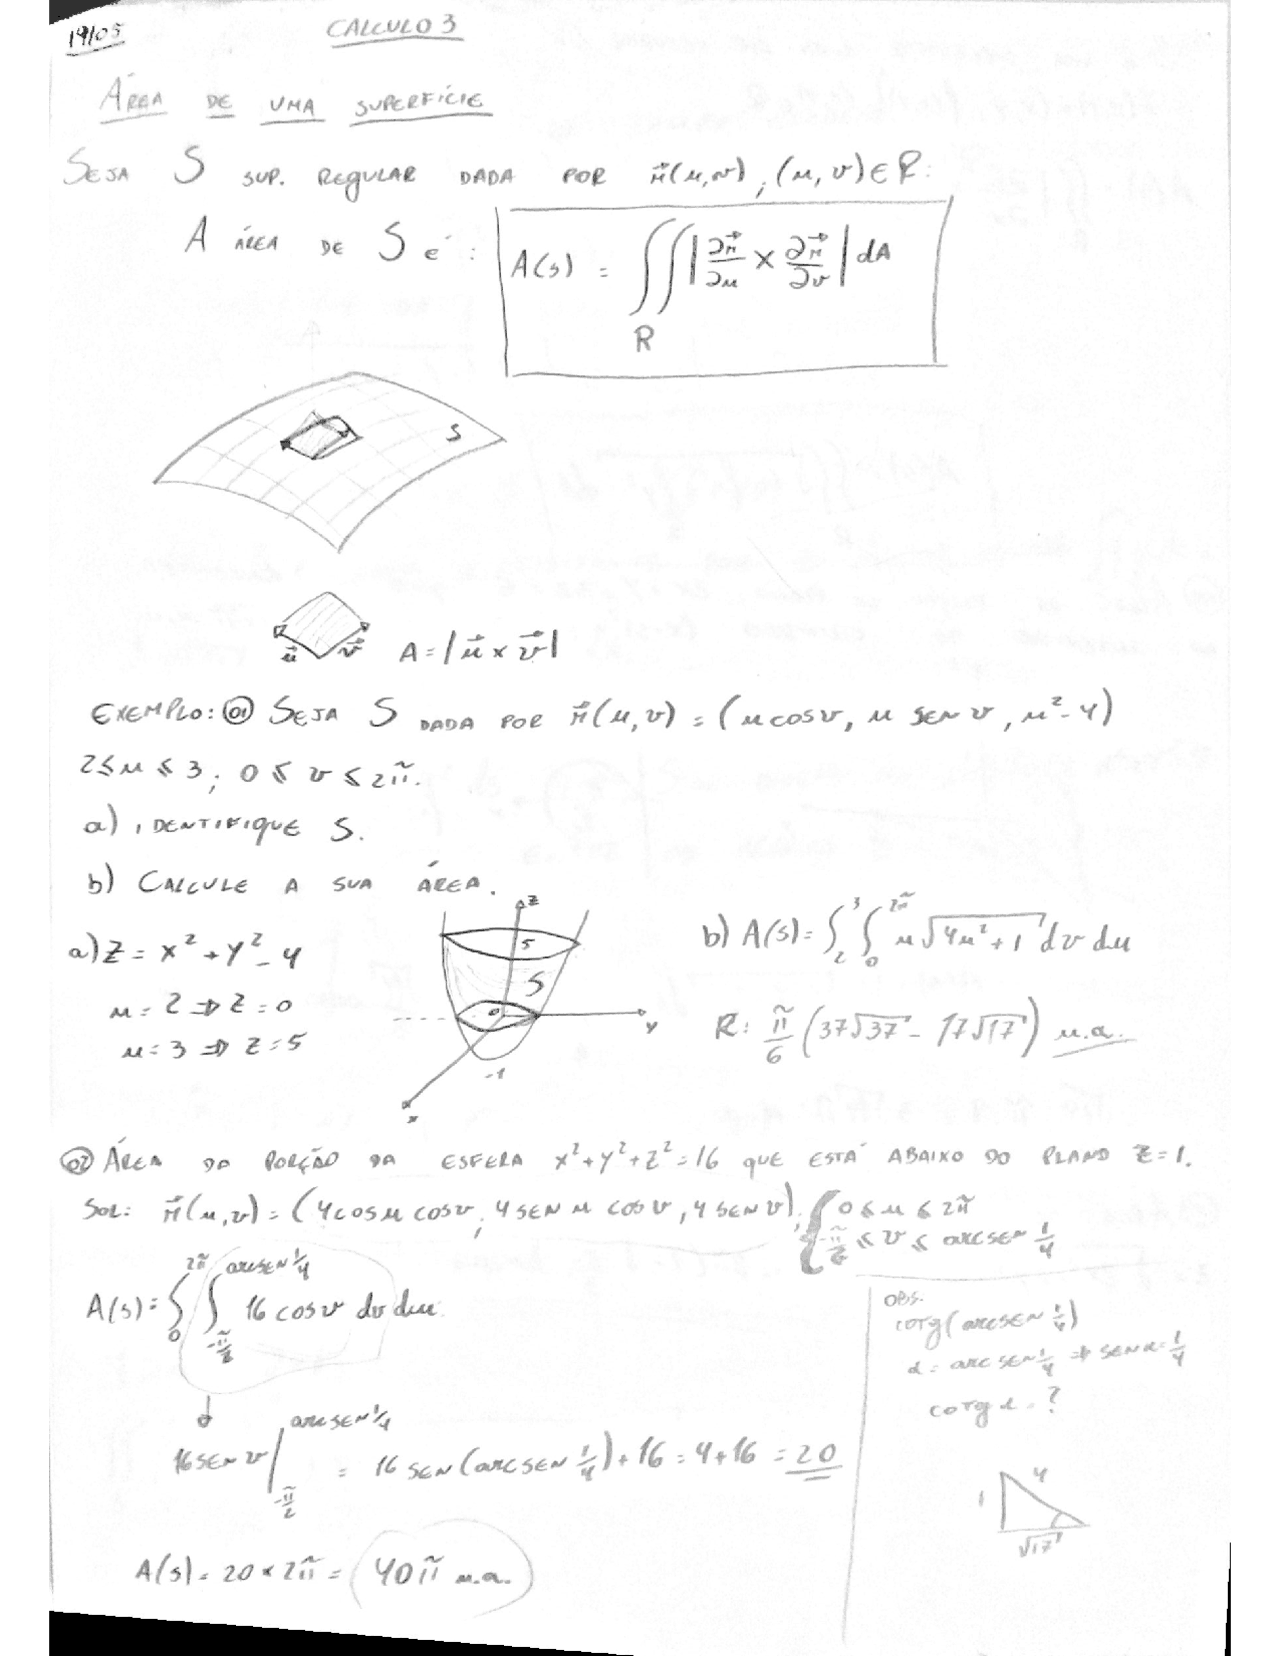 19/05
CALCULO 3
ÁREA DE UMA SUPERFÍCIE
SEJA S SUP. REGULAR DADA POR r⃗(u,v), (u,v) ∈ R:
A ÁREA DE S é:
A(s) = ∬_R |∂r⃗/∂u × ∂r⃗/∂v| dA
S
u⃗ v⃗ A = |u⃗ × v⃗|
EXEMPLO: 01 SEJA S DADA POR r⃗(u,v) = (u cos v, u sen v, u² - 4)
2 ≤ u ≤ 3; 0 ≤ v ≤ 2π.
a) IDENTIFIQUE S.
b) CALCULE A SUA ÁREA.
a) Z = x² + y² - 4
u = 2 ⇒ Z = 0
u = 3 ⇒ Z = 5
z
5
S
0
y
-1
x
b) A(s) = ∫_2^3 ∫_0^2π u√(4u² + 1) dv du
R: π/6 (37√37 - 17√17) u.a.
02 ÁREA DA PORÇÃO DA ESFERA x² + y² + z² = 16 QUE ESTÁ ABAIXO DO PLANO Z = 1.
SOL: r⃗(u,v) = (4 cos u cos v, 4 sen u cos v, 4 sen v), { 0 ≤ u ≤ 2π
-π/2 ≤ v ≤ arcsen 1/4
A(s) = ∫_0^2π ∫_-π/2^arcsen 1/4 16 cos v dv du
16 sen v |_-π/2^arcsen 1/4 = 16 sen(arcsen 1/4) + 16 = 4 + 16 = 20
A(s) = 20 × 2π = 40π u.a.
OBS.
cotg(arcsen 1/4)
α = arcsen 1/4 ⇒ sen α = 1/4
cotg α = ?
4
1
√17